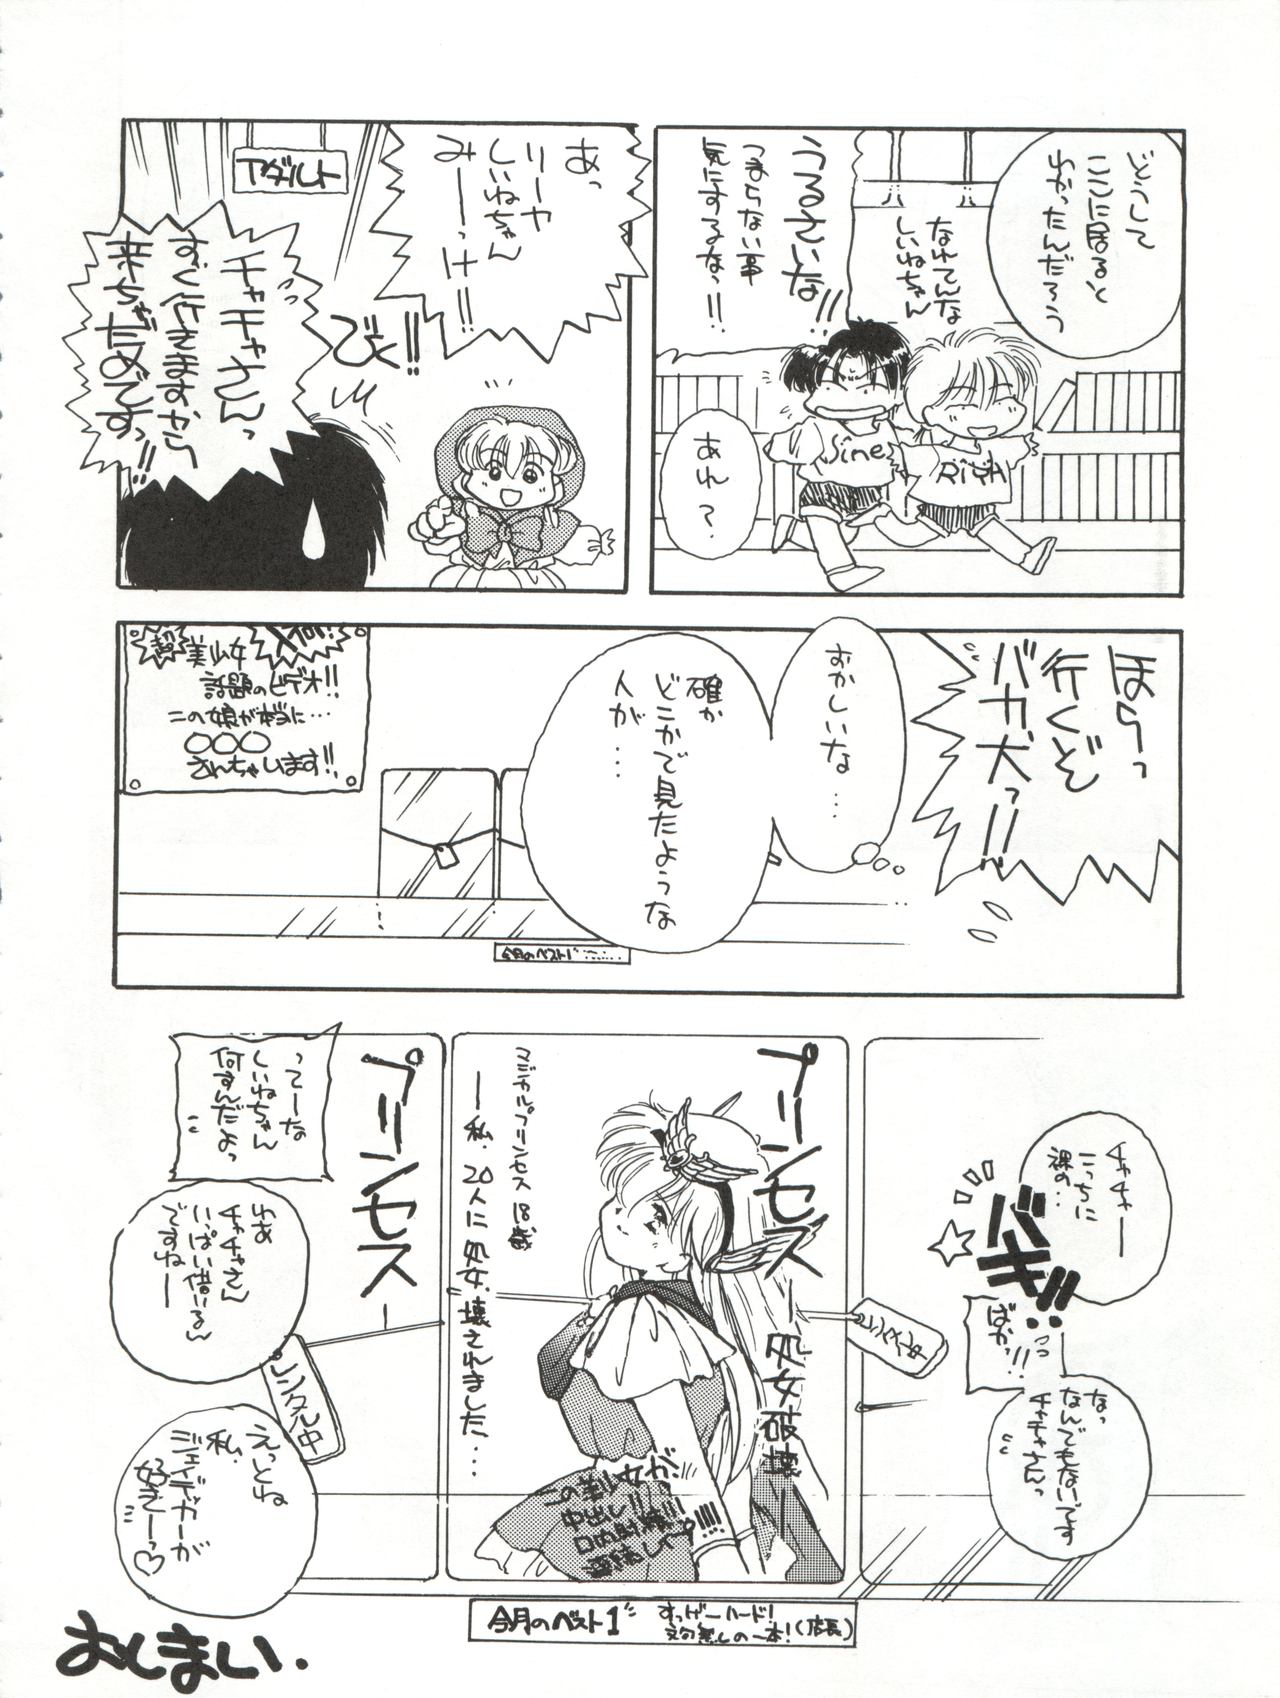 どうして
ここに居ると
わかったんだろう
なれてんな
しいねちゃん
うるさいな!!
つまらない事
気にするなっ!!
Sine
Riiya
あれ?
あっ
リーヤ
しいねちゃん
みーっけ!!
アダルト
びくっ!!
チャチャさんっ
すぐ行きますから
来ちゃだめですっ!!
ほらっ
行くぞ
バカ犬っ!!
おかしいな…
確か
どこかで見たような
人が…
超
美少女
話題のビデオ!!
この娘が本当に…
〇〇〇
さんちゃいます!!
今月のベスト1
チャチャー
こっちに
裸の…
バキ!!
ばかっ!!
なっ
なんでもないです
チャチャさんっ
プリンセス
処女破壊
マジカルプリンセス 18歳
―私、20人に処女壊されました…
レンタル中
プリンセス
ってーな
しいねちゃん
何すんだよっ
わあ
チャチャさん
いっぱい借りるん
ですねー
レンタル中
えっとね
私、
ジェイデッカーが
好きーっ♡
今月のベスト1
すっげーハード!
文句無しの一本!(店長)
おしまい.